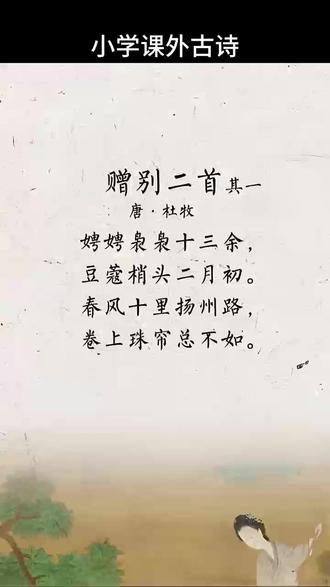 小学课外古诗
赠别二首其一
唐·杜牧
娉娉袅袅十三余，
豆蔻梢头二月初。
春风十里扬州路，
卷上珠帘总不如。